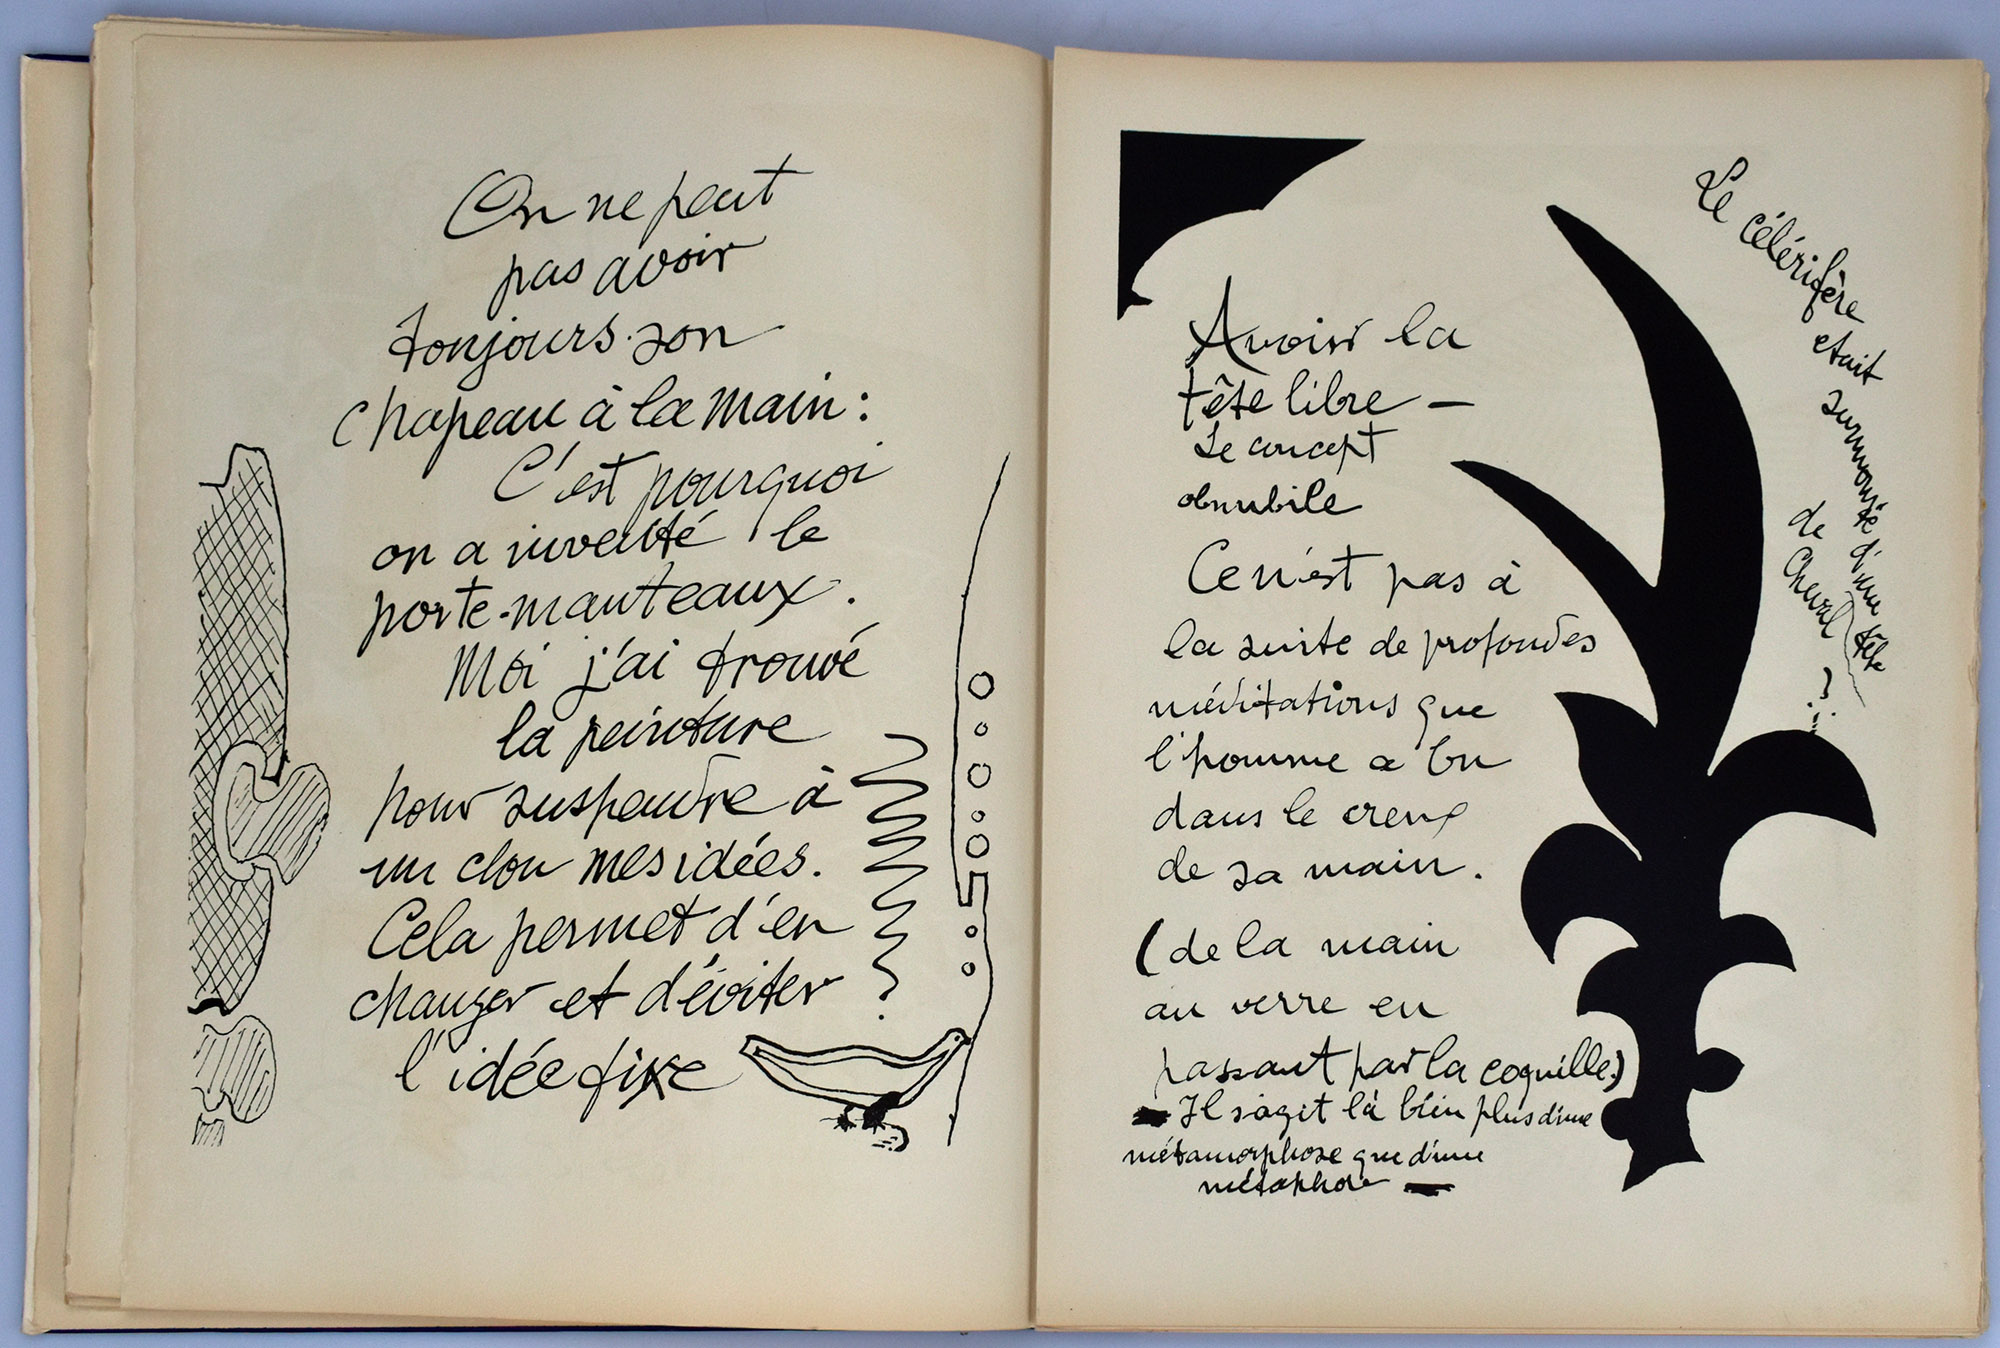 On ne peut
pas avoir
toujours son
chapeau à la main :
C'est pourquoi
on a inventé le
porte-manteaux.
Moi j'ai trouvé
la peinture
pour suspendre à
un clou mes idées.
Cela permet d'en
changer et d'éviter
l'idée fixe
Avoir la
tête libre —
Le concept
obnubile
Ce n'est pas à
la suite de profondes
méditations que
l'homme a bu
dans le creux
de sa main.
(de la main
au verre en
passant par la coquille)
— Il s'agit là bien plus d'une
métamorphose que d'une
métaphore —
Le célérifère
etait
surmonté d'une tête
de
cheval ?